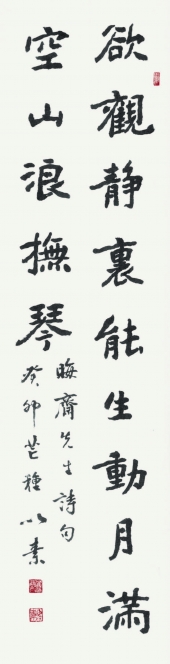 欲觀静裏能生動月滿
空山浪撫琴
晦齋先生詩句
癸卯芒種以素